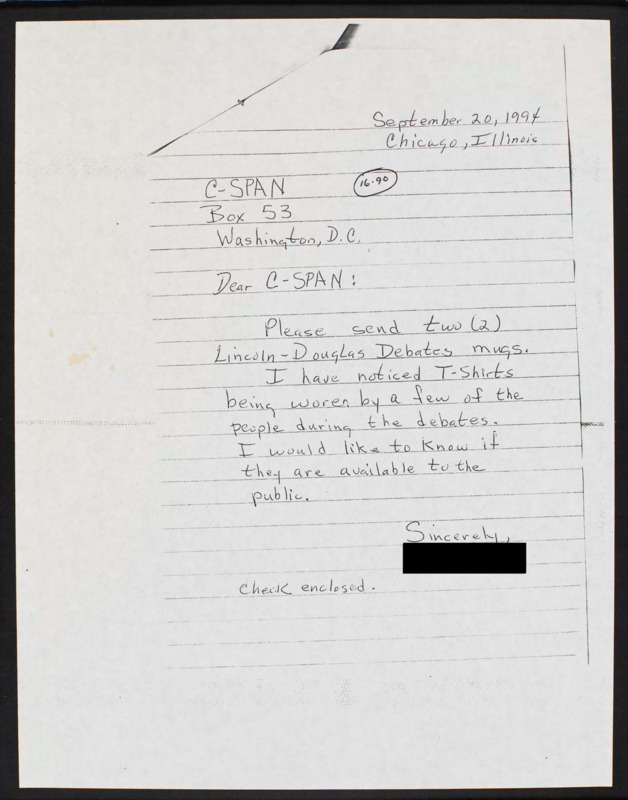 September 20, 1994
Chicago, Illinois
C-SPAN
16.90
Box 53
Washington, D.C.
Dear C-SPAN:
Please send two (2)
Lincoln-Douglas Debates mugs.
I have noticed T-Shirts
being woren by a few of the
people during the debates.
I would like to know if
they are available to the
public.
Sincerely,
Check enclosed.